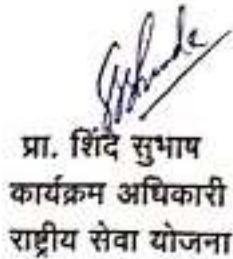 प्रा. शिंदे सुभाष
कार्यक्रम अधिकारी
राष्ट्रीय सेवा योजना